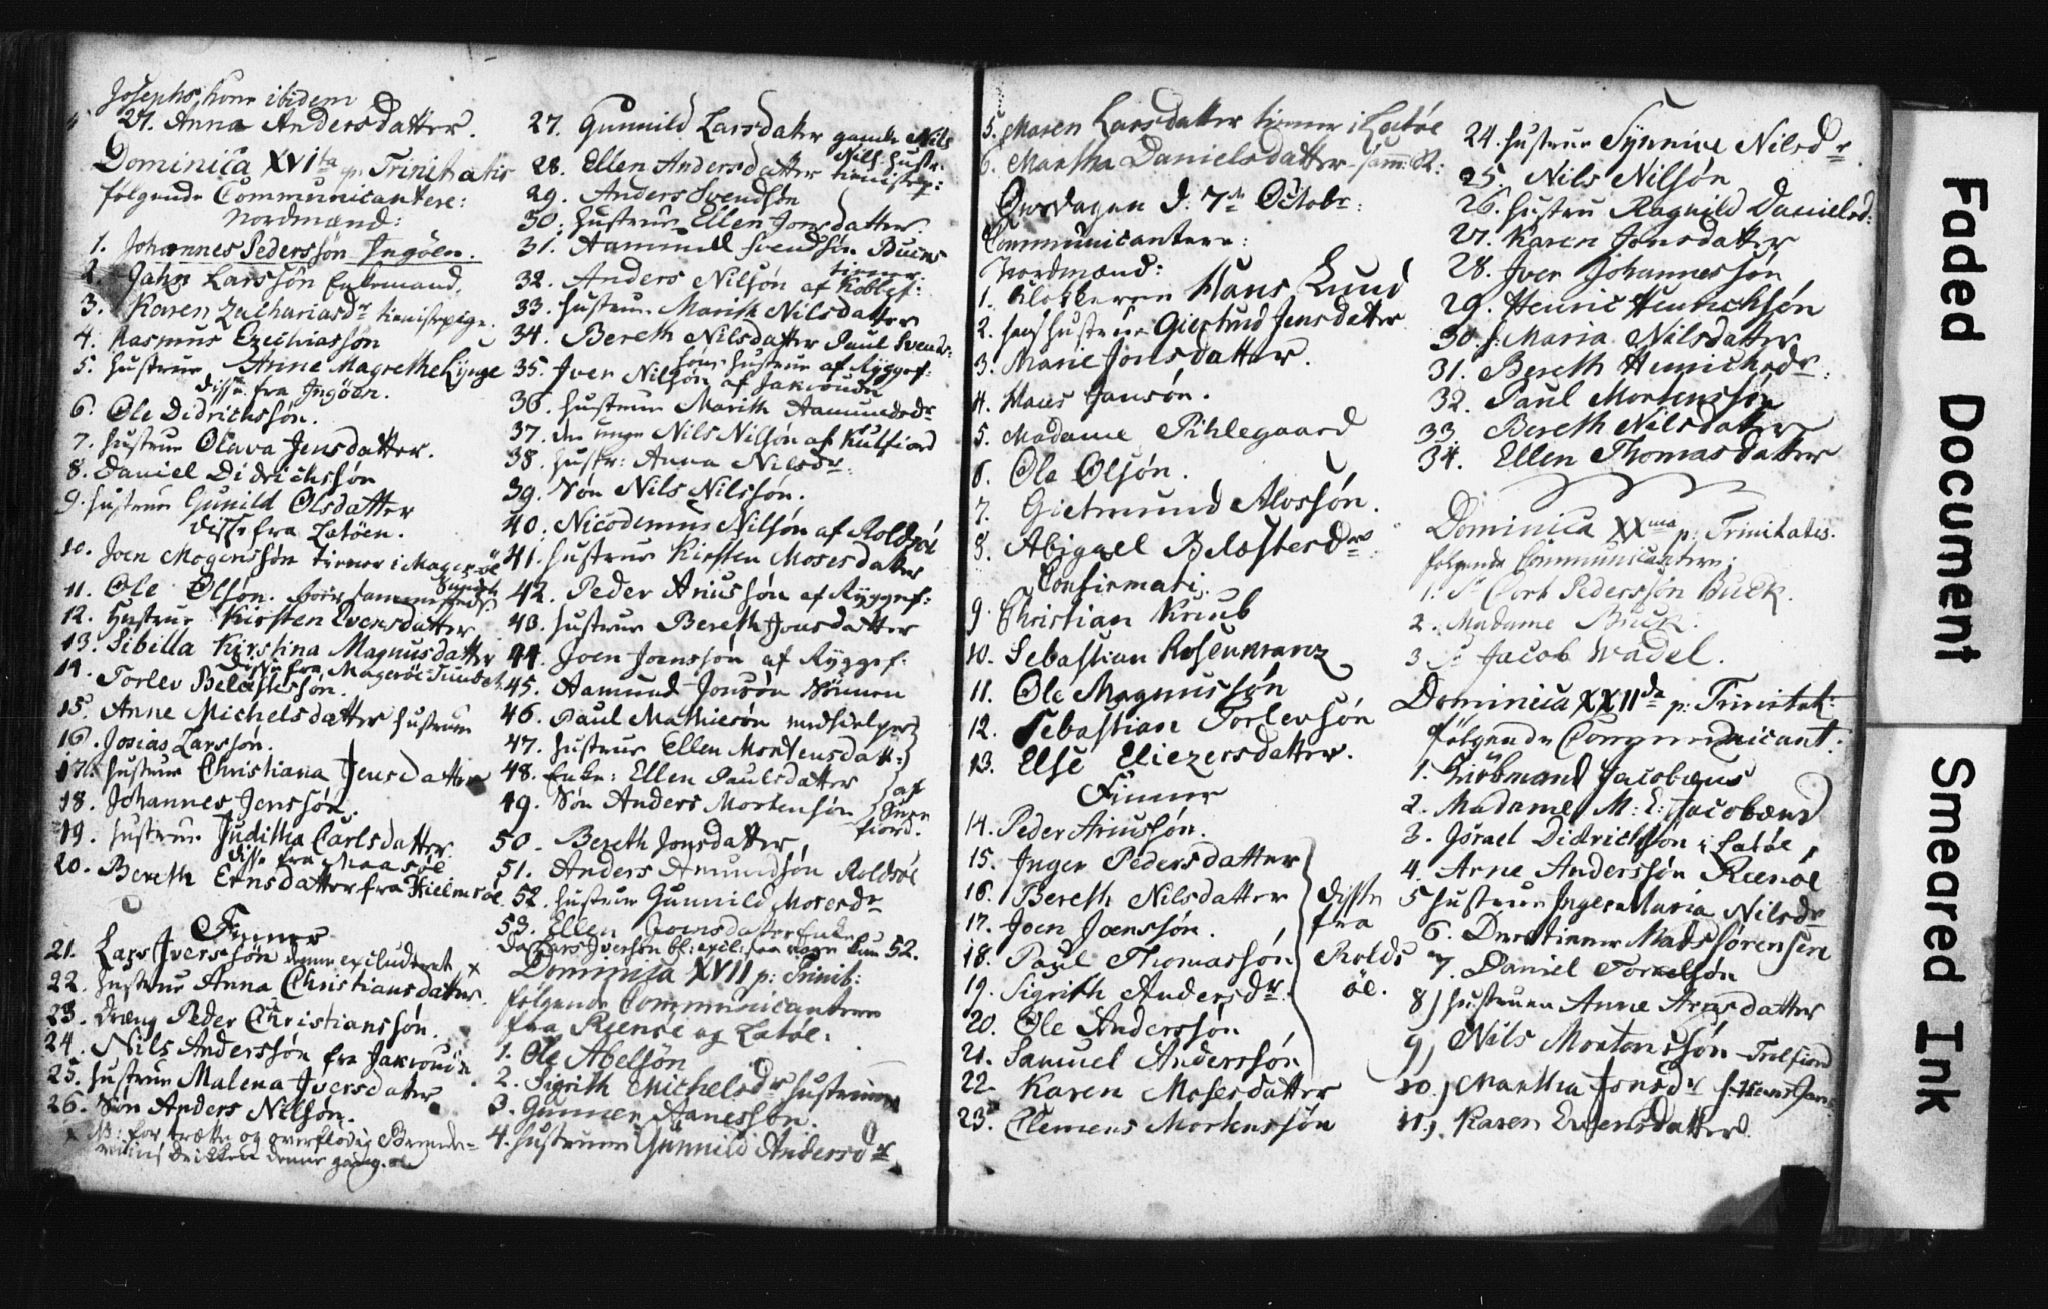 Josephs kone ibidem
27. Anna Andersdatter.
Dominica XVIta p. Trinitatis
følgende Communicantere:
Nordmænd:
1. Johannes Pederssøn Ingøen.
2. Jahn Larssøn Enkemand.
3. Karen Zachariasdr tienistepige.
4. Rasmus Ezechiassøn
5. Hustrue Anne Magrethe Lynge
disse fra Ingøen.
6. Ole Didrichssøn.
7. Hustrue Olava Jensdatter.
8. Daniel Didrichssøn
9. Hustrue Gunild Olsdatter
disse fra Latøen.
10. Joen Mogenssøn tiener i Magerøe
Sundet
11. Ole Olsøn. boer sammesteds
12. Hustrue Kirsten Eversdatter
13. Sibilla Kirstina Magnusdatter
disse fra Magerøe Sundet.
14. Torlev Belæstessøn.
15. Anne Michelsdatter hustrue
16. Josias Larssøn.
17. Hustrue Christiana Jensdatter
18. Johannes Jenssøn.
19. Hustrue Juditha Carlsdatter
disse fra Maasøe
20. Bereth Ernsdatter fra Hielmsøe
Finner
21. Lars Iverssøn denne excluderet x
22. Hustrue Anna Christiansdatter.
23. Dræng Peder Christianssøn.
24. Nils Anderssøn fra Jakroudn
25. Hustrue Malena Iversdatter
26. Søn Anders Nilsøn.
x NB: for trætte og overflødig Brende-
viins drikken denne gang.
27. Gunnild Larsdater gamle Nils
Nils: Hustr.
28. Ellen Andersdatter tienistep:
29. Anders Svendsøn
30. Hustrue Ellen Jonsdatter.
31. Aammell Svendsøn Bucks
tiener.
32. Anders Nilsøn af Koblef:
33. Hustrue Marith Nilsdatter
34. Bereth Nilsdatter Paul Svends-
søns Hustrue af Ryggef:
35. Iver Nilsøn af Jakroudn
36. Hustrue Marith Aamundsdr
37. den unge Nils Nilsøn af Kulfiord
38. Hustr: Anna Nilsdr:
39. Søn Nils Nilssøn.
40. Nicodemus Nilsøn af Roldsøe
41. Hustrue Kirsten Mosesdatter
42. Peder Ariussøn af Ryggef:
43. Hustrue Bereth Jonsdatter
44. Joen Joenssøn af Ryggef:
45. Aamund Jonsøn
46. Paul Mathiesøn medhielper
47. Hustrue Ellen Mortensdatt:
48. Enke: Ellen Paulsdatter
49. Søn Anders Mortensøn
af
fiord.
50. Bereth Jonsdatter,
51. Anders Amundsøn Roldsøe
52. Hustrue Gunnild Mosesdr
53. Ellen Joensdatter Enke
Da Lars Iversøn bl: excl: saa var kun 52.
Dominica XVII p: Trinit:
følgende Communicantere
fra Rænse og Latøe:
1. Ole Abelsøn
2. Sigrith Michelsdr hustruen
3. Gunner Aanessøn.
4. Hustruen Gunnild Andersdr
5. Maren Larsdatter tiener i Latøe
6. Martha Danielsdatter samm: St:
Onsdagen d. 7de Octobr:
Communicantere:
Nordmænd:
1. Klokkeren Hans Lund
2. hans hustrue Giertrud Jensdatter
3. Marie Jonsdatter.
4. Hans Jansøn.
5. Madame Pihlegaard
6. Ole Olsøn.
7. Gietmund Alossøn.
8. Abigael Belæstesdr
Confirmati.
9. Christian Knub
10. Sebastian Rosenkranz
11. Ole Magnussøn
12. Sebastian Torlevsøn
13. Else Eliezersdatter.
Finner
14. Peder Ariussøn.
15. Inger Pedersdatter
16. Bereth Nilsdatter
17. Joen Joenssøn.
18. Paul Thomassøn
19. Sigrith Andersdr.
20. Ole Anderssøn
21. Samuel Anderssøn
disse
fra
Rolds
øe.
22. Karen Mosesdatter
23. Clemens Mortenssøn
24. Hustrue Synnive Nilsdr.
25. Nils Nilsøn
26. Hustru Ragnild Danielsd:
27. Karen Jonsdatter
28. Iver Johannessøn
29. Henric Henrichsøn
30. f. Maria Nilsdatter
31. Bereth Henrichsdr.
32. Paul Mortenssøn
33. Bereth Nilsdatter
34. Ellen Thomasdatter
Dominica XXma p: Trinitatis.
følgende Communicantere:
1. Sr Cort Pederssøn Buck.
2. Madame Buck.
3. Sr Jacob Wadel.
Dominica XXIIda p: Trinitat:
følgende Communicant:
1. Kiøbmand Jacobæus
2. Madame M: E: Jacobæus
3. Israel Didrichssøn i Latøe
4. Arne Anderssøn Rænøe
5. Hustrue Inger Maria Nilsdr
6. Mads Sørensen
7. Daniel Torkelsøn
8) Hustruen Anne Aresdatter
9) Nils Mortenssøn Trolfiord
10.) Martha Jonsdr
11.) Karen Evensdatter.
Faded Document
Smeared Ink